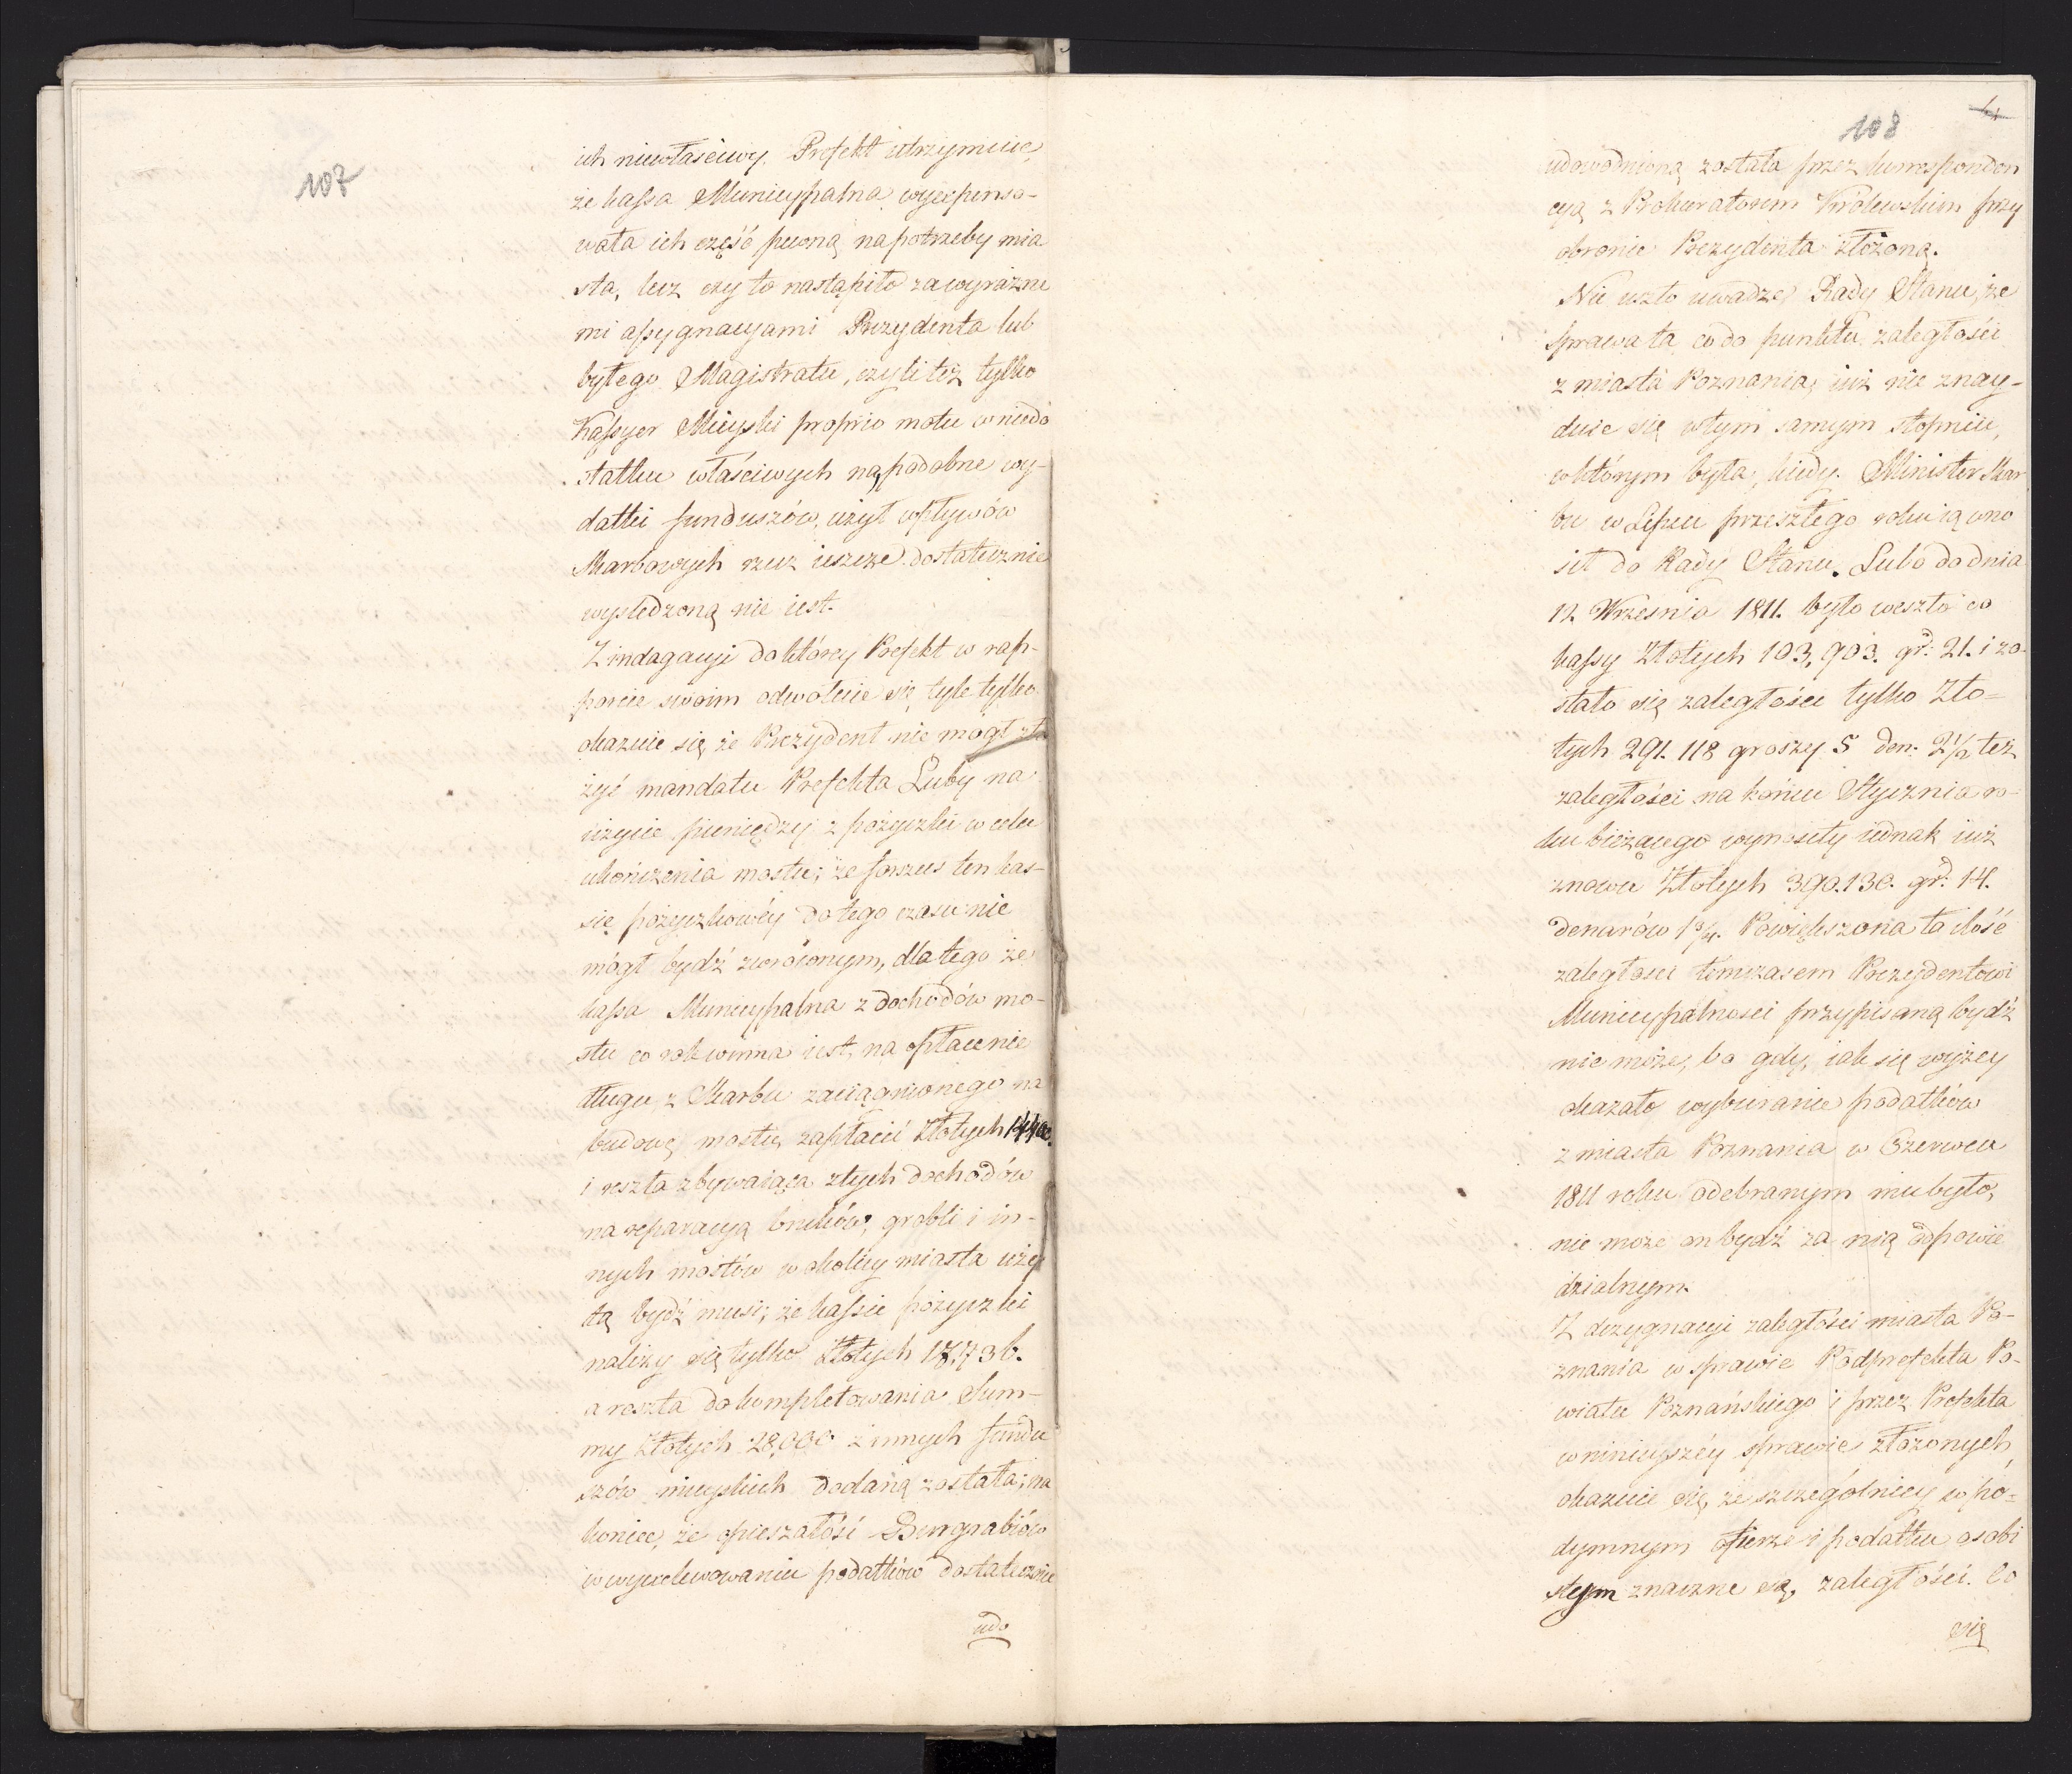 107
ich niewłaściwy. Prefekt utrzymuie,
że kassa Municypalna wyexpenso-
wała ich część pewną na potrzeby mia
sta, lecz czy to nastąpiło za wyraźne
mi assygnacyami Prezydenta lub
byłego Magistratu, czyli też tylko
Kassyer Mieyski proprio motu w niedo
statku właściwych na podobne wy-
datki funduszów, użył wpływów
Skarbowych rzecz ieszcze dostatecznie
wyśledzoną nie iest.
Z indagacyi do którey Prefekt w rap-
porcie swoim odwołuie się tyle tylko
okazuie się że Prezydent nie mógł zło
żyć mandatu Prefekta Luby na
użycie pieniędzy z pożyczki w celu
ukończenia mostu; że forszus ten kas-
się pożyczkowéy do tego czasu nie
mógł bydź zwróconym, dla tego że
kassa Municypalna z dochodów mo-
stu co rok winna iest, na opłacenie
długu z Skarbu zaciągnionego na
budowę mostu, zapłacić Złotych 14400.
i reszta zbywaiąca z tych dochodów
na reparacyą bruków, grobli i in-
nych mostów w okolicy miasta uży
tą bydź musi; że kassie pożyczki
należy się tylko Złotych 18,736.
a reszta do kompletowania Sum-
my Złotych 28,000 z innych fundu
szów mieyskich dodaną została; na
koniec, że opieszałość Burgrabiów
w wyexekwowaniu podatków dostatecznie
udo
108
udowodnioną została przez korresponden
cyą z Prokuratorem Królewskim przy
obronie Prezydenta złożoną.
Nie uszło uwadze Rady Stanu, że
sprawa ta co do punktu zaległości
z miasta Poznania, iuż nie znay-
duie się w tym samym stopniu,
w którym była, kiedy Minister Skar
bu w Lipcu przeszłego roku ią wno
sił do Rady Stanu. Lubo do dnia
12. Września 1811. było weszło do
kassy Złotych 103,903. gr: 21. i zo
stało się zaległości tylko Zło-
tych 291.118 groszy 5 den: 2 1/2 też
zaległości na końcu Stycznia ro-
ku bieżącego wynosiły iednak iuż
znowu Złotych 390.130. gr: 14.
denarów 1 3/4. Powiększona ta ilość
zaległości tymczasem Prezydentowi
Municypalności przypisaną bydź
nie może, bo gdy, iak się wyżey
okazało wybieranie podatków
z miasta Poznania w Czerwcu
1811 roku odebranym mu było,
nie może on bydź za nią odpowie
dzialnym.
Z dezygnacyi zaległości miasta Po-
znania w sprawie Podprefekta Po-
wiatu Poznańskiego i przez Prefekta
w ninieyszéy sprawie złożonych,
okazuie się, że szczególniey w po-
dymnym ofierze i podatku osobi
stym znaczne są, zaległości. Co
się